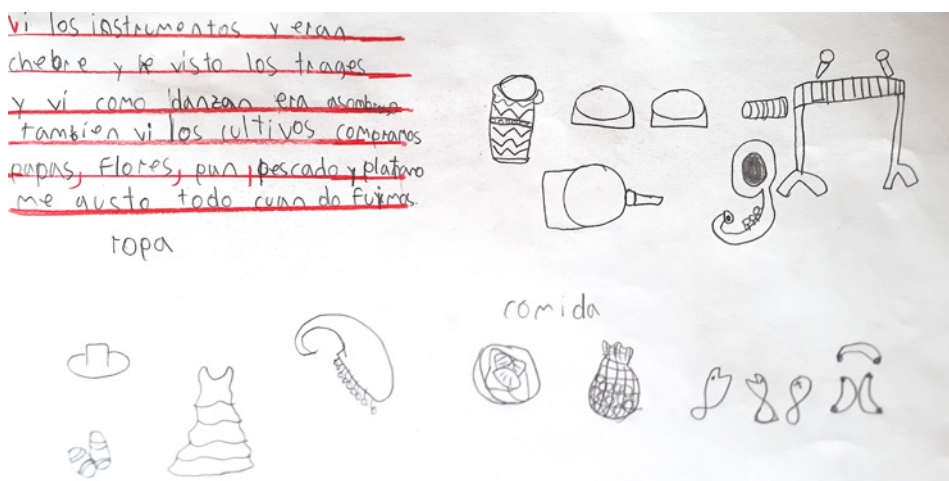 vi los instrumentos y eran
chebre y he visto los trages
y vi como danzan era asombroso
tambien vi los cultivos compramos
papas, flores, pan, pescado y platano
me gusto todo cuando fuimos.
ropa
comida